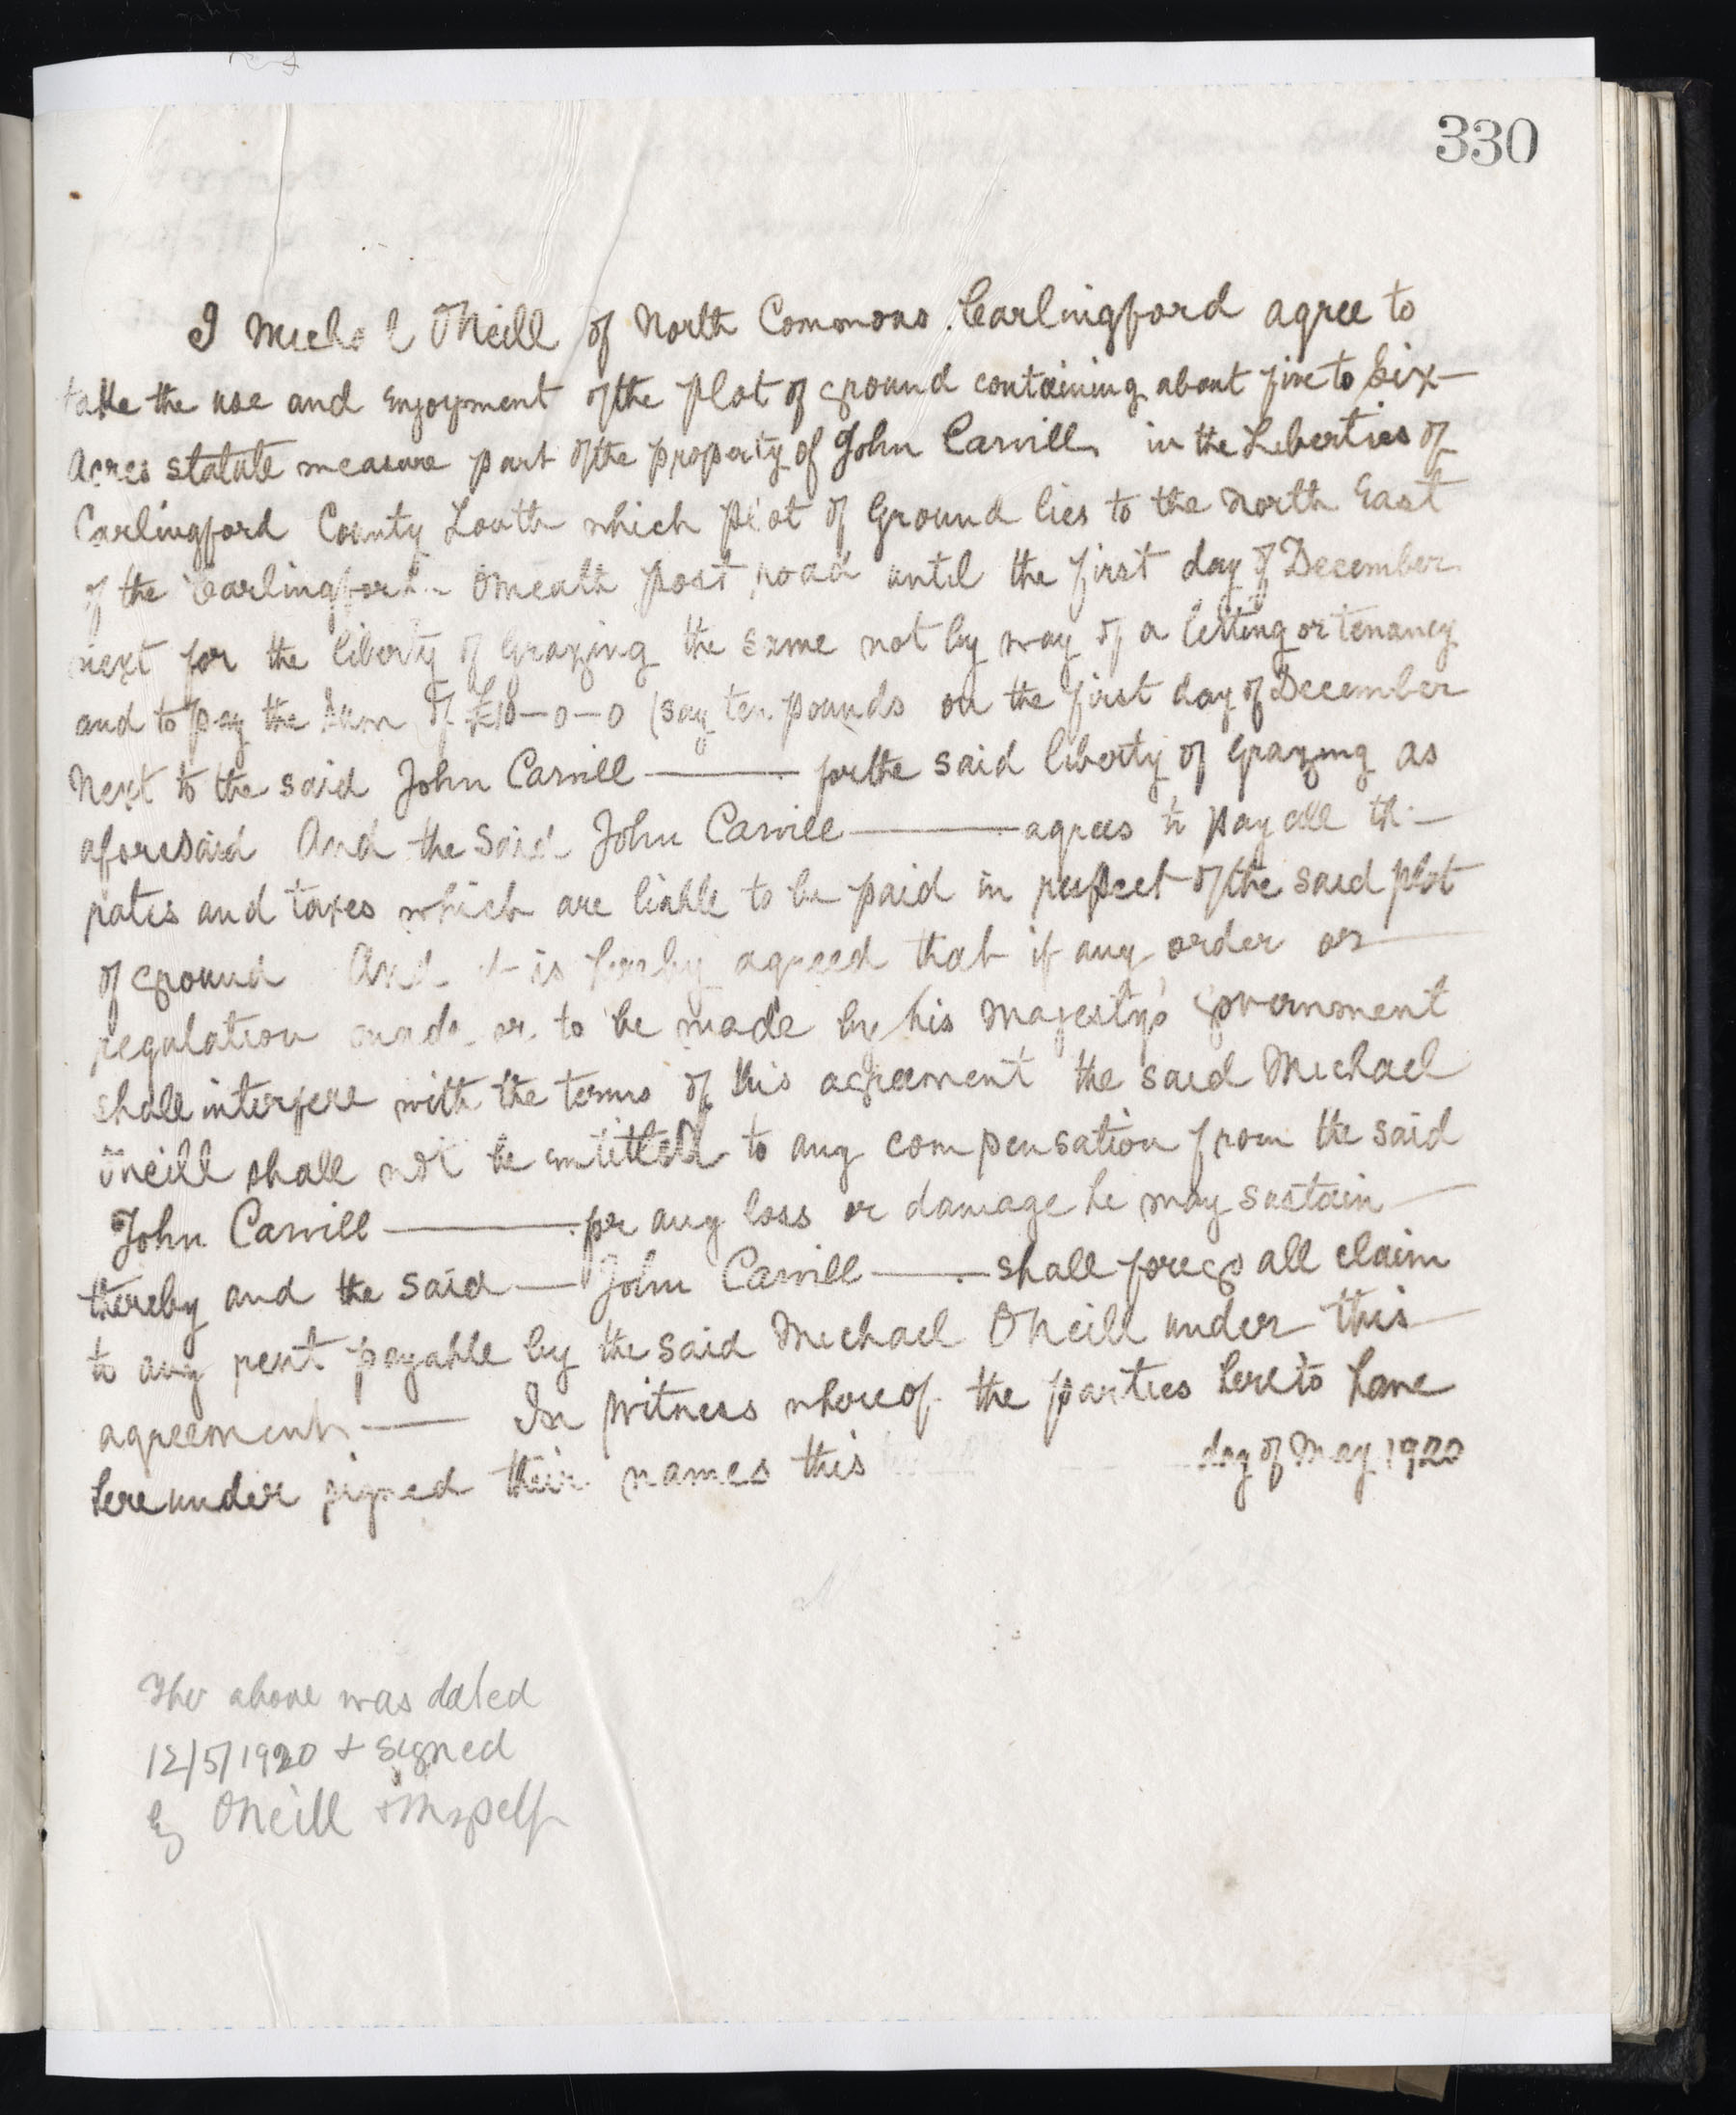 330
I Michael ONeill of North Commons Carlingford agree to
take the use and Enjoyment of the plot of ground containing about five to Six
Acres statute measure part of the property of John Carvill in the Liberties of
Carlingford County Louth which plot of Ground lies to the North East
of the Carlingford Omeath post road until the first day of December
next for the liberty of Grazing the same not by way of a letting or tenancy
and to pay the Sum of £10-0-0 (say ten pounds on the first day of December
Next to the said John Carvill — for the said liberty of Grazing as
aforesaid And the Said John Carvill — agrees to pay all the
rates and taxes which are liable to be paid in respect of the said plot
of ground And it is hereby agreed that if any order or
regulation made or to be made by his Majesty's Government
shall interfere with the terms of this agreement the said Michael
ONeill shall not be entitled to any compensation from the said
John Carvill — for any loss or damage he may sustain
thereby and the said — John Carvill — shall forego all claim
to any rent payable by the said Michael ONeill under this
agreement — In Witness whereof the parties hereto have
hereunder signed their names this day of May 1920
The above was dated
12/5/1920 + signed
by ONeill + Myself